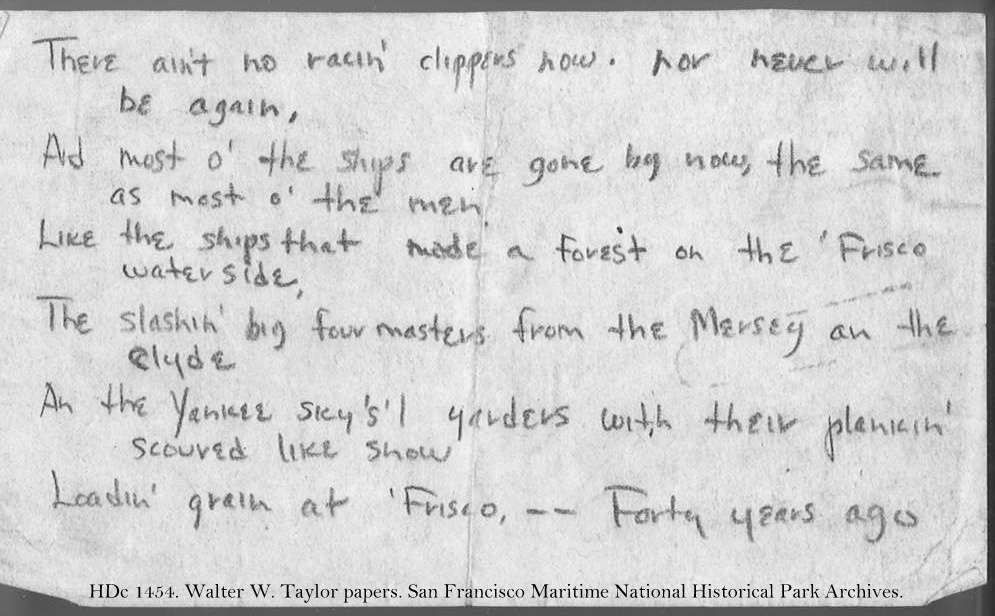 There ain't no racin' clippers now. nor never will
be again,
And most o' the ships are gone by now, the same
as most o' the men
Like the ships that made a forest on the 'Frisco
waterside,
The slashin' big four masters from the Mersey an the
Clyde
An the Yankee sky's'l yarders with their plankin'
scoured like snow
Loadin' grain at 'Frisco, -- Forty years ago
HDc 1454. Walter W. Taylor papers. San Francisco Maritime National Historical Park Archives.